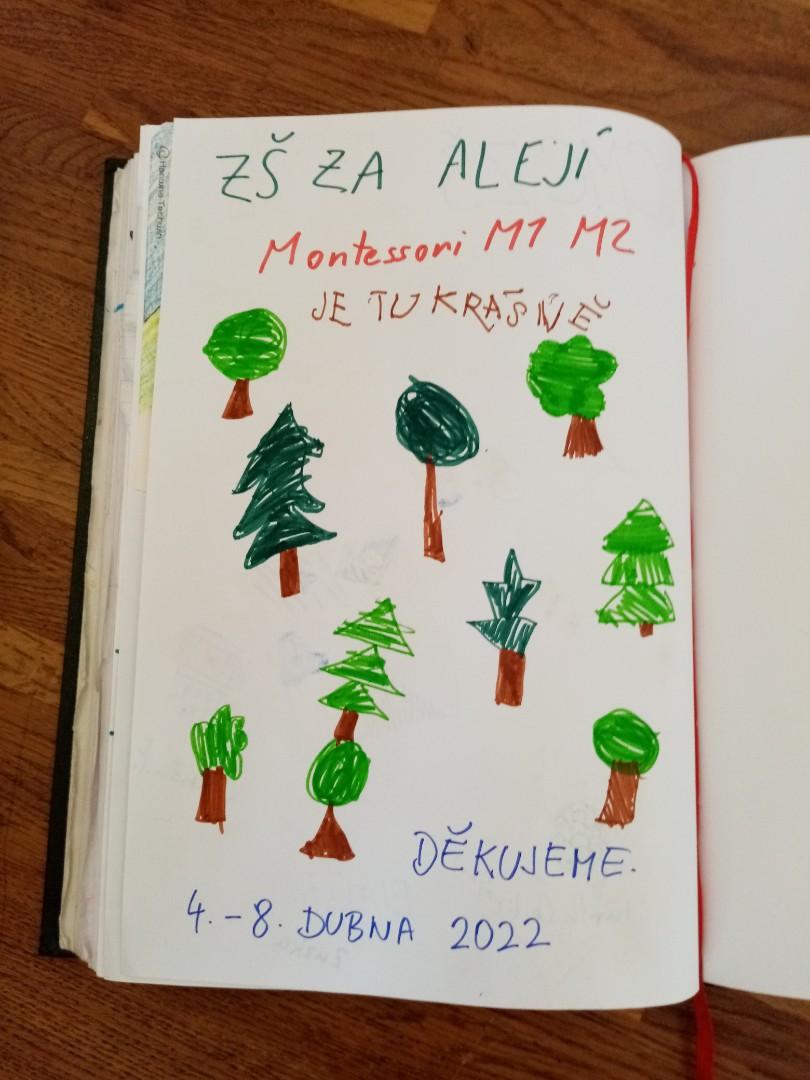 ZŠ ZA ALEJÍ
Montessori M1 M2
JE TU KRÁSNĚ
DĚKUJEME.
4. - 8. DUBNA 2022